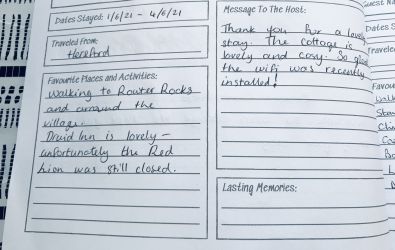 Dates Stayed: 1/6/21 - 4/6/21
Traveled From:
Hereford
Favourite Places and Activities:
Walking to Router Rocks
and around the
village.
Druid Inn is lovely -
unfortunately the Red
Lion was still closed.
Message To The Host:
Thank you for a lovely
stay. The cottage is
lovely and cosy. So glad
the wifi was recently
installed!
Lasting Memories:
Guest Na
Dates S
Travele
Favou